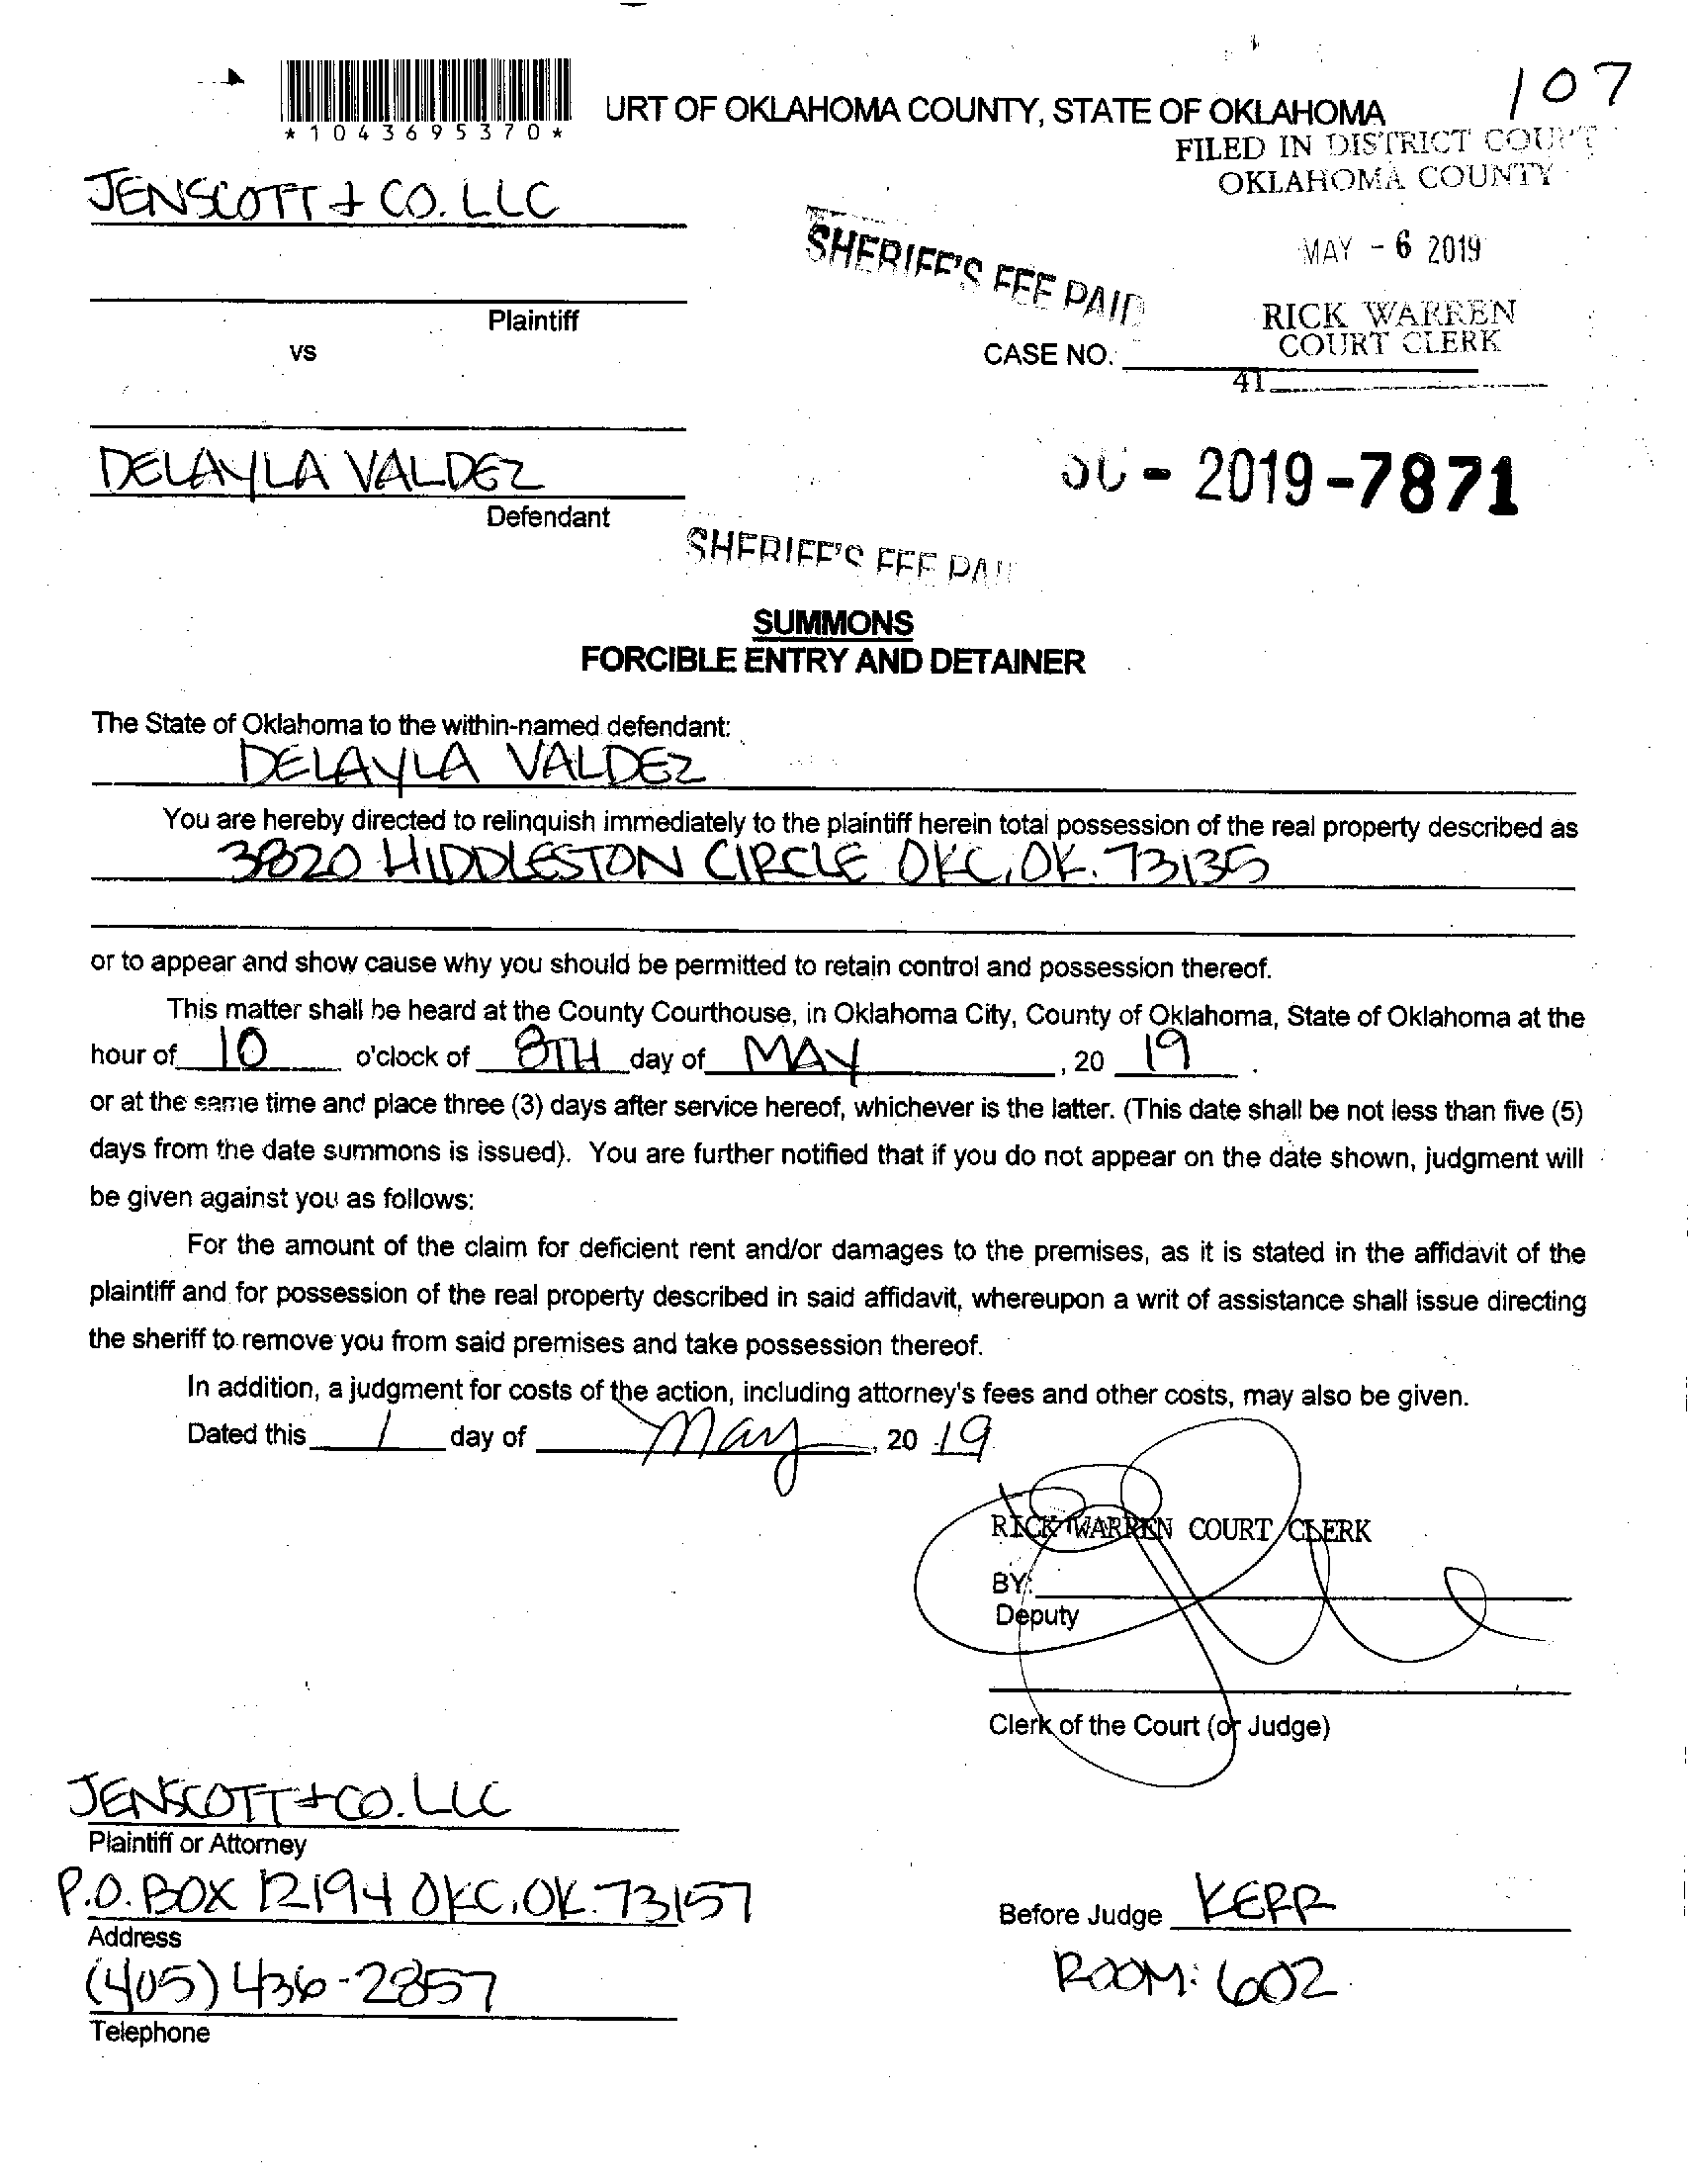 107
*1043695370*
URT OF OKLAHOMA COUNTY, STATE OF OKLAHOMA
FILED IN DISTRICT COURT
OKLAHOMA COUNTY
JENSCOTT + CO. LLC
SHERIFF'S FEE PAID
MAY - 6 2019
Plaintiff
RICK WARREN
COURT CLERK
vs
CASE NO.
41
DELAYLA VALDEZ
- 2019-7871
Defendant
SHERIFF'S FEE PAID
SUMMONS
FORCIBLE ENTRY AND DETAINER
The State of Oklahoma to the within-named defendant:
DELAYLA VALDEZ
You are hereby directed to relinquish immediately to the plaintiff herein total possession of the real property described as
3820 HIDDLESTON CIRCLE OKC, OK. 73135
or to appear and show cause why you should be permitted to retain control and possession thereof.
This matter shall be heard at the County Courthouse, in Oklahoma City, County of Oklahoma, State of Oklahoma at the
hour of 10 o'clock of 8TH day of MAY, 20 19.
or at the same time and place three (3) days after service hereof, whichever is the latter. (This date shall be not less than five (5)
days from the date summons is issued). You are further notified that if you do not appear on the date shown, judgment will
be given against you as follows:
For the amount of the claim for deficient rent and/or damages to the premises, as it is stated in the affidavit of the
plaintiff and for possession of the real property described in said affidavit, whereupon a writ of assistance shall issue directing
the sheriff to remove you from said premises and take possession thereof.
In addition, a judgment for costs of the action, including attorney's fees and other costs, may also be given.
Dated this 1 day of May, 20 19
RICK WARREN COURT CLERK
BY:
Deputy
Clerk of the Court (or Judge)
JENSCOTT + CO. LLC
Plaintiff or Attorney
P.O. BOX 12194 OKC, OK. 73157
Address
Before Judge KERR
(405) 436-2857
ROOM: 602
Telephone